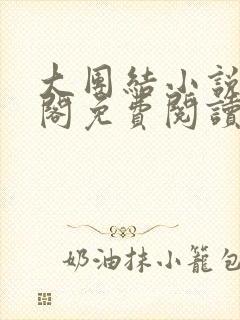 大團結小說
閣免費閱讀
奶油抹小籠包